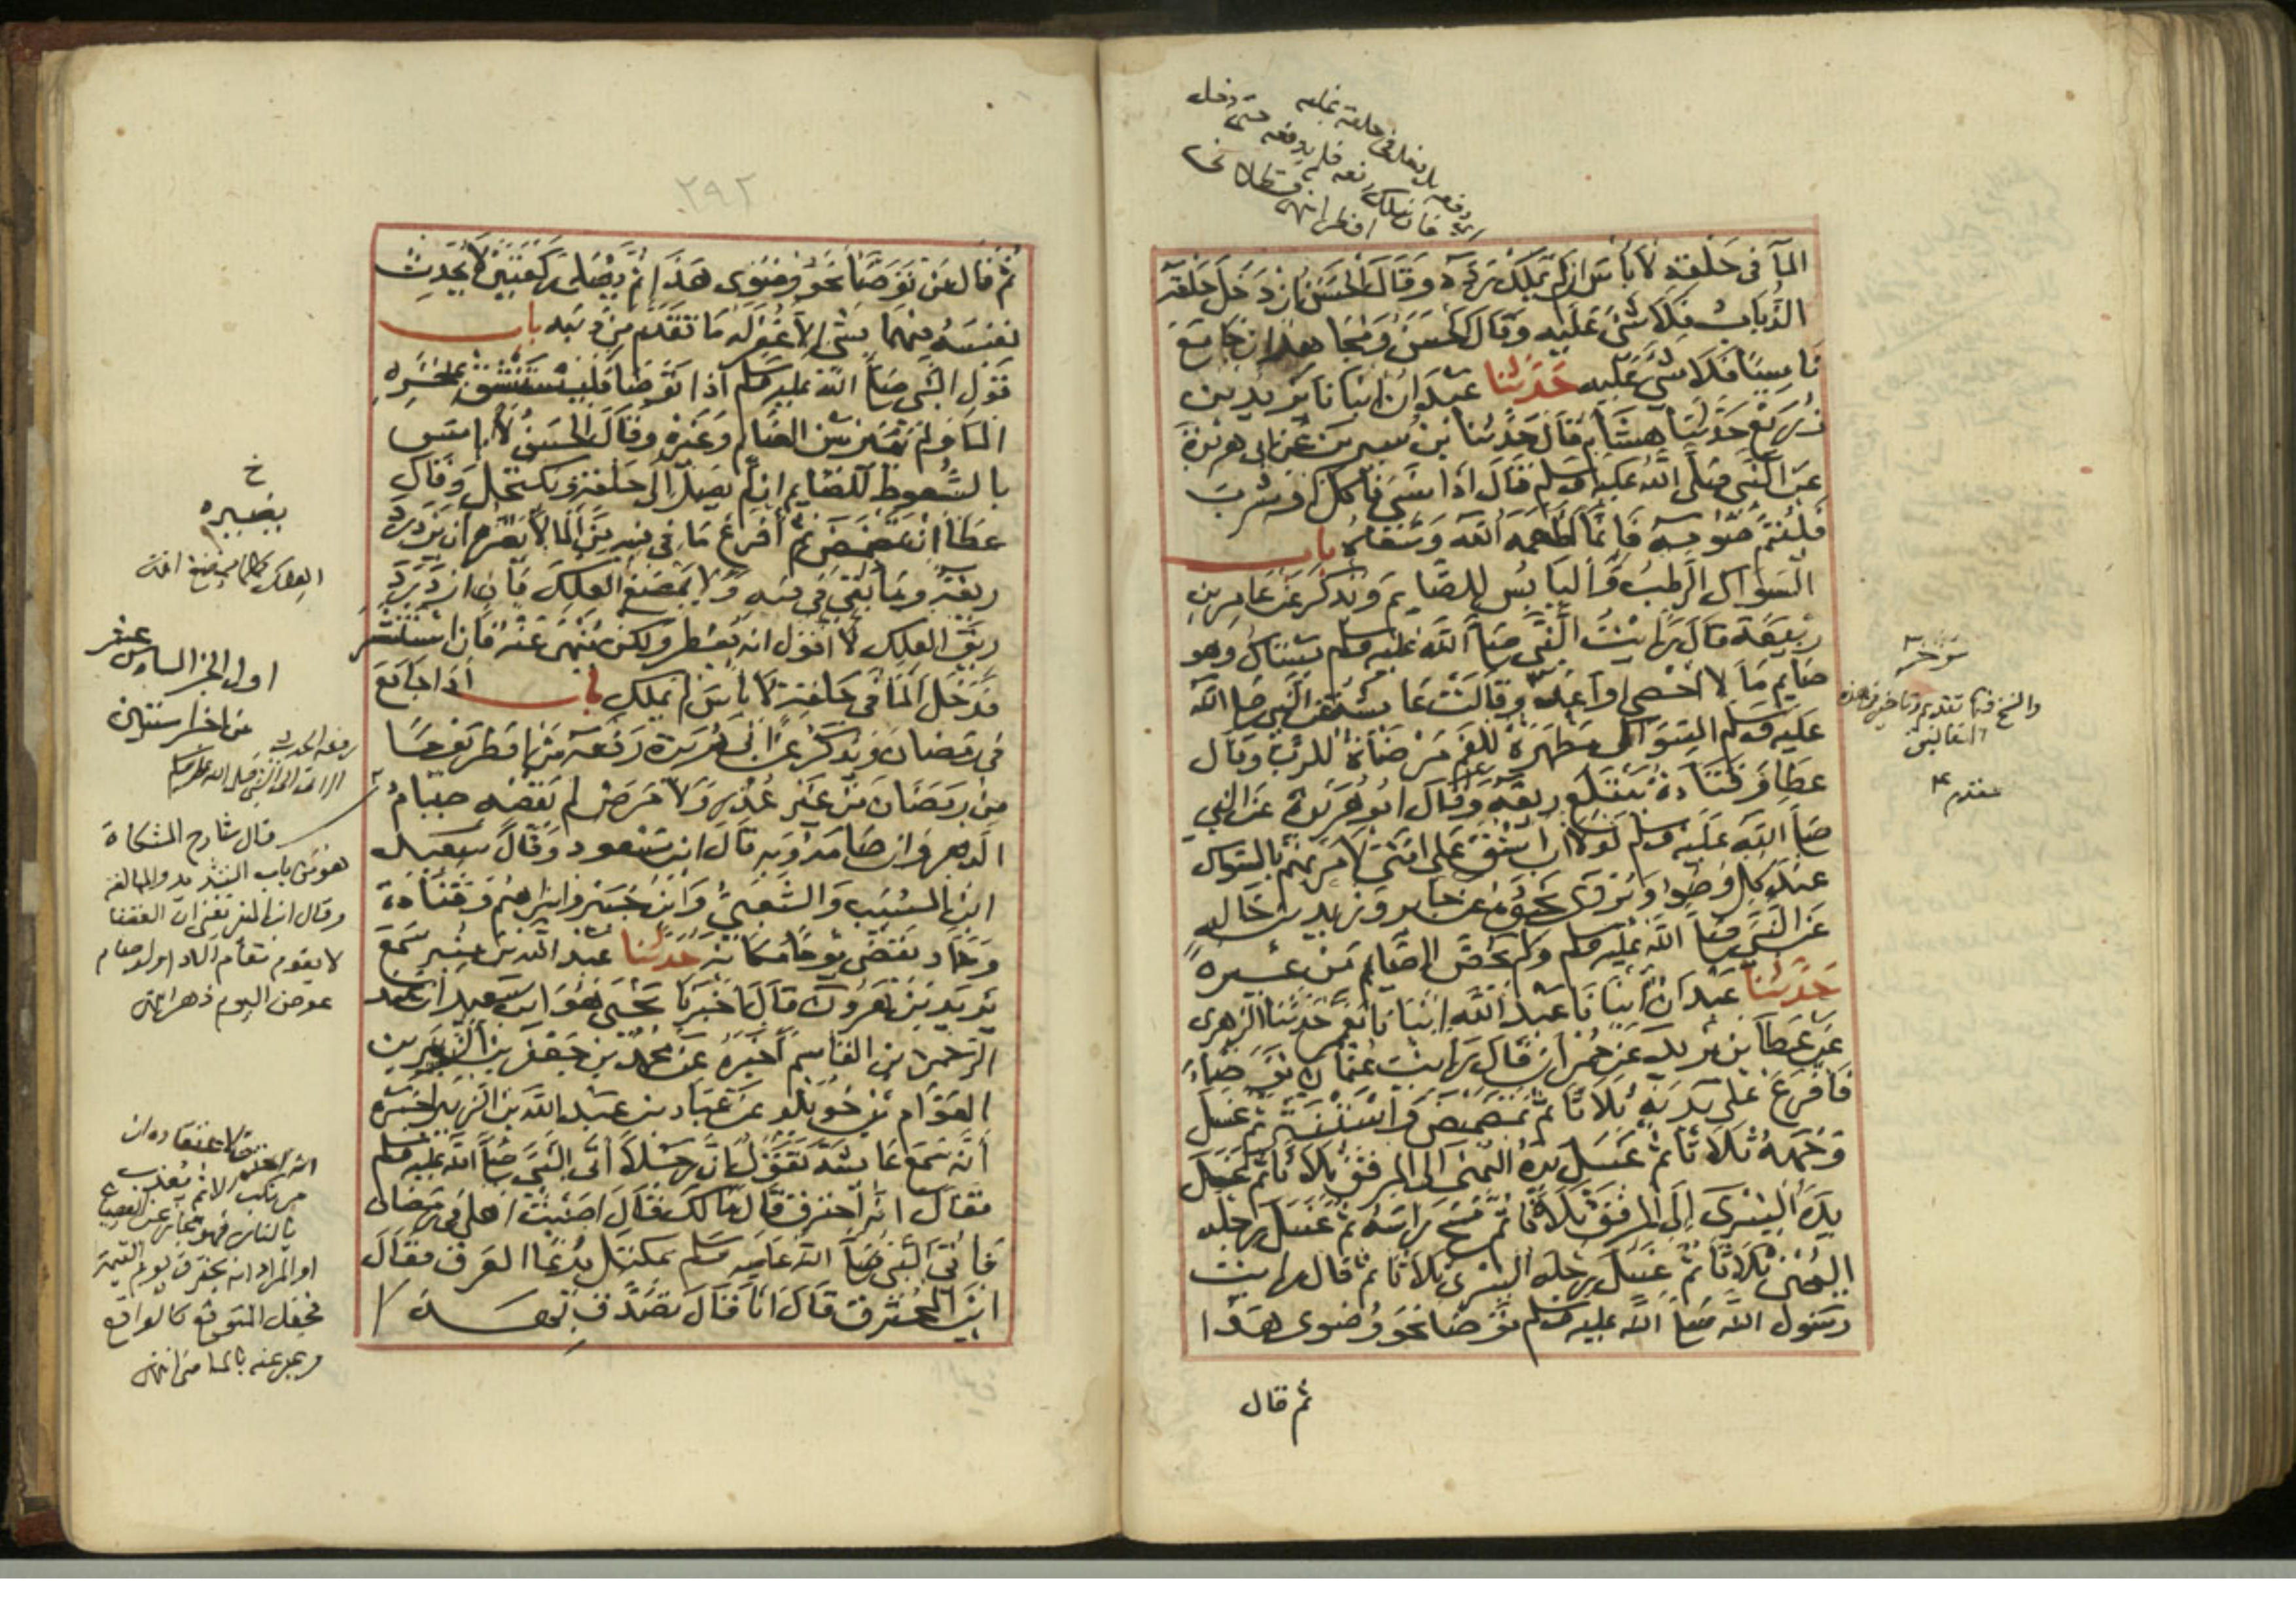 الماَ فى حَلقه لا بأس ان لم يملك ردّه وقال الحسن ان دخل حلقه
الذباب فلا شئ عليه وقال الحسن ومجاهد ان جامع
ناسيًا فلا شئ عليه حدثنا عبدان انبانا يزيد بن
زريع حدثنا هشام قال حدثنا ابن سيرين عن ابى هريرة
عن النبى صلى الله عليه وسلم قال اذا نسى فاكل وشرب
فليتم صومه فانما اطعمه الله وسقاه باب
السواك الرطب واليابس للصايم ويذكر عن عامر بن
ربيعة قال رايت النبى صلى الله عليه وسلم يستاك وهو
صايم ما لا احصى او اعد وقالت عايشة عن النبى صلى الله
عليه وسلم السواك مطهرة للفم مرضاة للرب وقال
عطا وقتادة يبتلع ريقه وقال ابو هريرة عن النبى
صلى الله عليه وسلم لولا ان اشق على امتى لامرتهم بالسواك
عند كل وضوا ويروى نحوه عن جابر وزيد بن خالد
عن النبى صلى الله عليه وسلم ولم يخص الصايم من غيره
حدثنا عبدان انبانا عبد الله انبانا معمر حدثنا الزهرى
عن عطا بن يزيد عن حمران قال رايت عثمان توضاء
فافرغ على يديه ثلاثا ثم تمضمض واستنثر ثم غسل
وجهه ثلاثا ثم غسل يده اليمنى الى المرفق ثلاثا ثم غسل
يده اليسرى الى المرفق ثلاثا ثم مسح راسه ثم غسل رجله
اليمنى ثلاثا ثم غسل رجله اليسرى ثلاثا ثم قال رايت
رسول الله صلى الله عليه وسلم توضا نحو وضوى هذا
ثم قال
٢٩٢
ثم قال من توضا نحو وضوى هذا ثم يصلى ركعتين لا يحدث
نفسه فيهما بشئ الا غفر له ما تقدم من ذنبه باب
قول النبى صلى الله عليه وسلم اذا توضا فليستنشق بمنخره
الما ولم يميز بين الصايم وغيره وقال الحسن لا باس
بالسعوط للصايم ان لم يصل الى حلقه ويكتحل وقال
عطا ان تمضمض ثم افرغ ما فى فيه من الما لا يضره ان يزدرد
ريقه وما بقى فى فيه ولا يمضغ العلك فان ازدرد
ريق العلك لا اقول انه يفطر ولكن ينهى عنه فان استنثر
فدخل الما فى حلقه لا باس لم يملك باب اذا جامع
فى رمضان ويذكر عن ابى هريرة رفعه من افطر يوما
من رمضان من غير عذر ولا مرض لم يقضه صيام
الدهر وان صامه وبه قال ابن مسعود وقال سعيد
ابن المسيب والشعبى وابن جبير وابراهيم وقتادة
وحماد يقضى يوما مكانه حدثنا عبد الله بن منير سمع
يزيد بن هرون قال اخبرنا يحيى هو ابن سعيد ان عبد
الرحمن بن القاسم اخبره عن محمد بن جعفر بن الزبير بن
العوام بن خويلد عن عباد بن عبد الله بن الزبير اخبره
انه سمع عايشة تقول ان رجلا اتى النبى صلى الله عليه وسلم
فقال انه احترق قال مالك فقال اصبت اهلى فى رمضان
فاتى النبى صلى الله عليه وسلم بمكتل يدعا العرق فقال
اين المحترق قال انا قال تصدق بهذا
اول الجز السادس عشر
من اجزا ستين
قال شارح المشكاة
هو من باب التشديد والمبالغة
وقال ابن المنير يعنى ان القضا
لا يقوم مقام الادا ولو صام
عوض اليوم دهرا انتهى
او المراد انه يحترق يوم القيمة
فجعل المتوقع كالواقع
وعبر عنه بالماضى انتهى